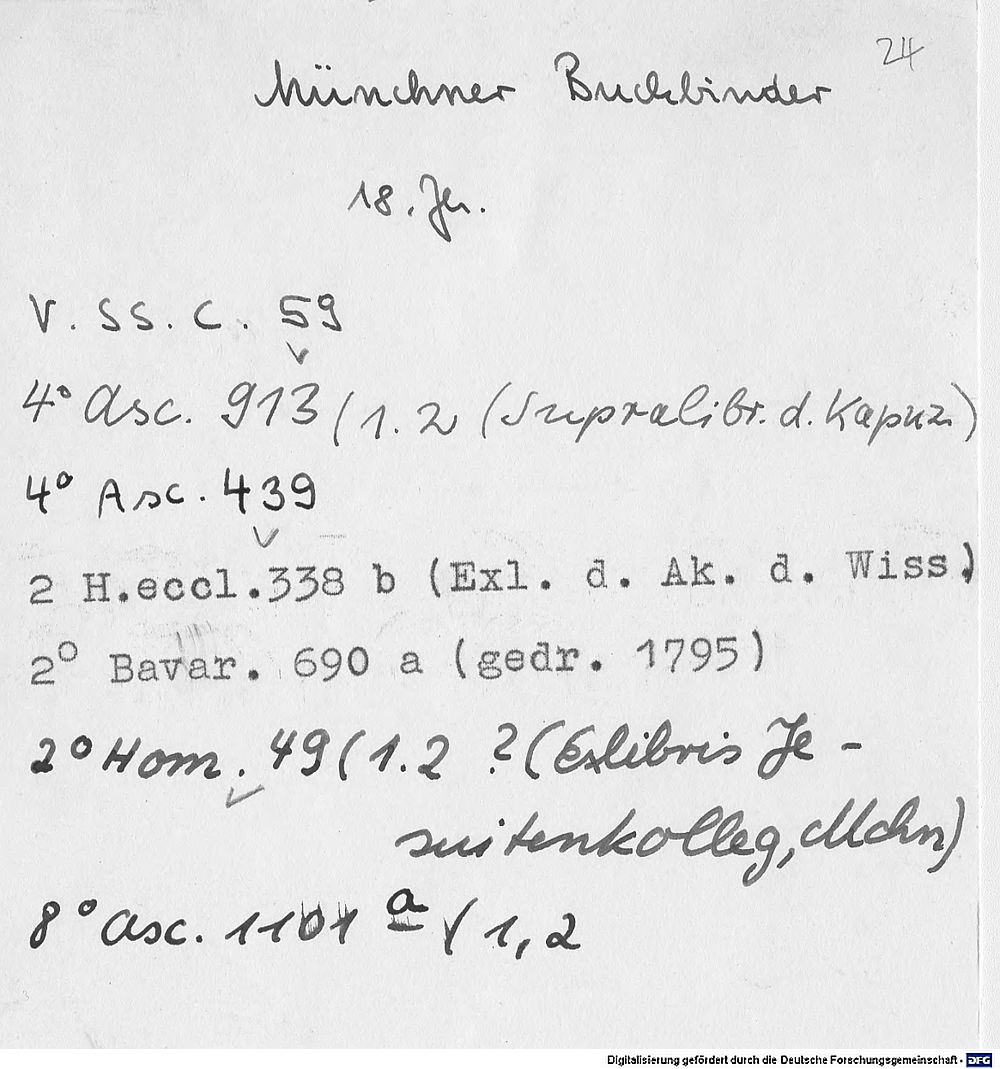 24
Münchner Buchbinder
18. Jh.
V. SS. C. 59
4° Asc. 913/1.2 (Supralibr. d. Kapuz.)
4° Asc. 439
2 H.eccl.338 b (Exl. d. Ak. d. Wiss.)
2° Bavar. 690 a (gedr. 1795)
2° Hom. 49(1.2 ? (Exlibris Je-
suitenkolleg, Mchn)
8° Asc. 1101 a (1,2
Digitalisierung gefördert durch die Deutsche Forschungsgemeinschaft - DFG